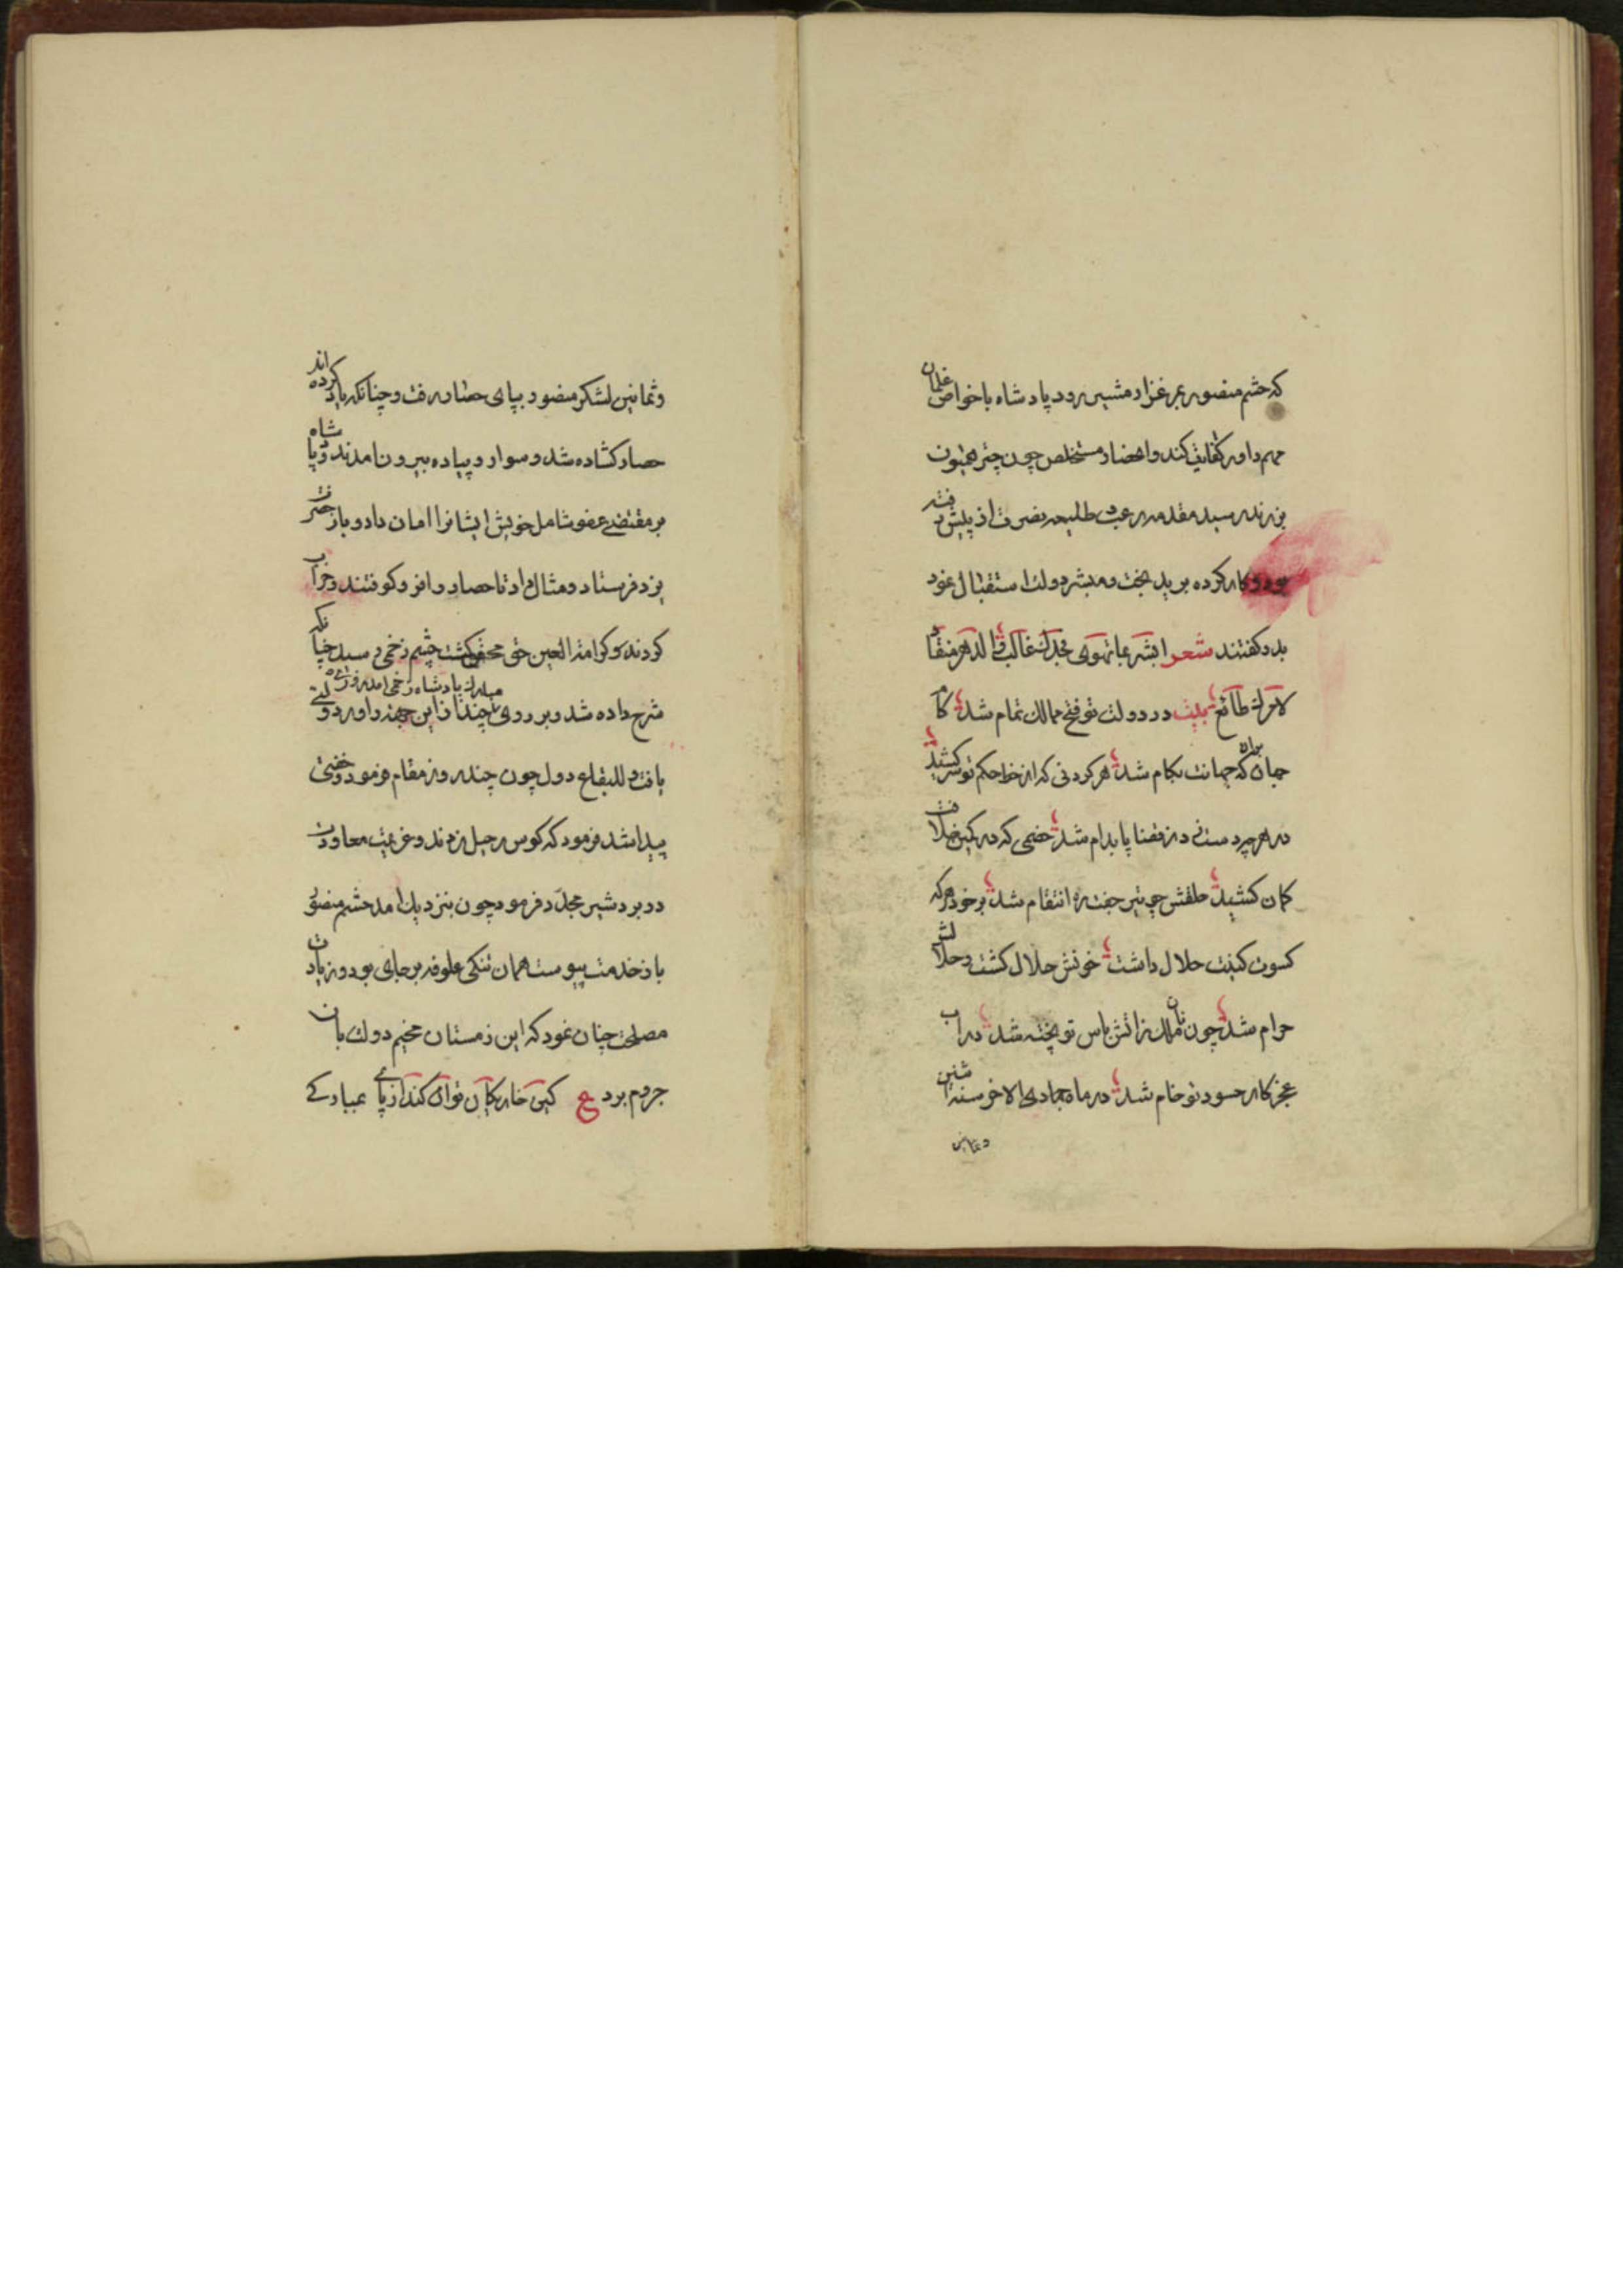 که حشم منصور بمرغزار مشیر رود پادشاه با خواص غلمان
مهم داور کفایت کند و احضار مستخلص چون چتر همیون
بزرند رسید مقدمه رعب طلیعه نصرت از پیش رفته
بود و کار کرده برید بخت و مبشر دولت استقبال نمود
بدو گفتند شعر ابشر بما تهوی فجدک غالب فالدهر منقاد
لامرک طائع بیت در دولت تو فتح ممالک تمام شد کام
جهان که جهانت بکام شد هر گردنی که از خط حکم تو سر کشید
در هر چه دست زد قضا پا بدام شد خصمی که در کمین خلافت
کمان کشید حلقش چو تیر جفته انتقام شد بر خود هر که
کسوت کینت حلال داشت خونش حلال گشت و حلالش
حرام شد چون نان ملک ز آتش باس تو پخته شد در آب
عجز کار حسود تو خام شد در ماه جمادی الاخر سنه اثنین
و ثمانین
و ثمانین لشکر منصور بپای حصار رفت و چنانکه یاد کرده اند
حصار گشاده شد و سوار و پیاده بیرون امدند و پادشاه
بر مقتضی عفو شامل خویش ایشانرا امان داد و باز حضرت
یزد فرستاد و مثال داد تا حصار را فرو کوفتند و خراب
کردند و کرامة العین حتی محقق گشت چشم زخمی رسید چنانکه
مبارک پادشاه زخمی امد روزی
شرح داده شد و بر روی چند از این جهة داور دولتی
یافت و للبقاع دول چون چند روز مقام فرمود و خفتی
پیدا شد فرمود که کوس رحیل زدند و عزیمت معاودت
دربردشیر مجدد فرمود چون بنزدیک امد حشم منصور
باز خدمت پیوست همان تنکی علوفه بر جای بود و زیادت
مصلحت چنان نمود که این زمستان مخیم دولت باز
جروم برد ع کین خار بکان توان کند از پای عبادی